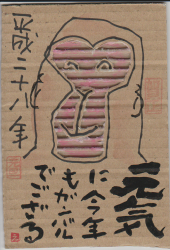 平成二十八年
元気
に今年
もガンバル
でござる